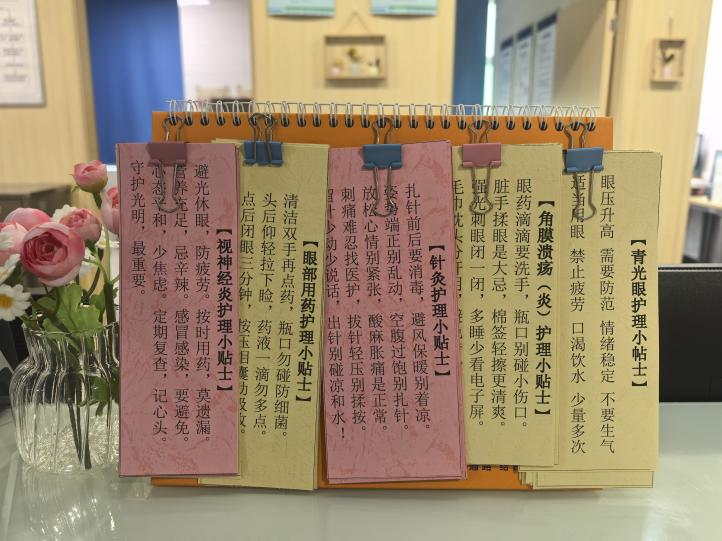 【青光眼护理小帖士】
眼压升高 需要防范 情绪稳定 不要生气
适当用眼 禁止疲劳 口渴饮水 少量多次
【角膜溃疡（炎）护理小贴士】
眼药滴滴要洗手，瓶口别碰小伤口。
脏手揉眼是大忌，棉签轻擦更清爽。
强光刺眼闭一闭，多睡少看电子屏。
【针灸护理小贴士】
扎针前后要消毒，避风保暖别着凉。
姿势端正别乱动，空腹过饱别扎针。
放松心情别紧张，酸麻胀痛是正常。
刺痛难忍找医护，拔针轻压别揉按。
少动少说话，出针别碰凉和水！
【眼部用药护理小贴士】
清洁双手再点药，瓶口勿碰防细菌。
头后仰轻拉下睑，药液一滴勿多点。
点后闭眼三分钟，按压
【视神经炎护理小贴士】
避光休眼，防疲劳。按时用药，莫遗漏。
营养充足，忌辛辣。感冒感染，要避免。
心态平和，少焦虑。定期复查，记心头。
守护光明，最重要。